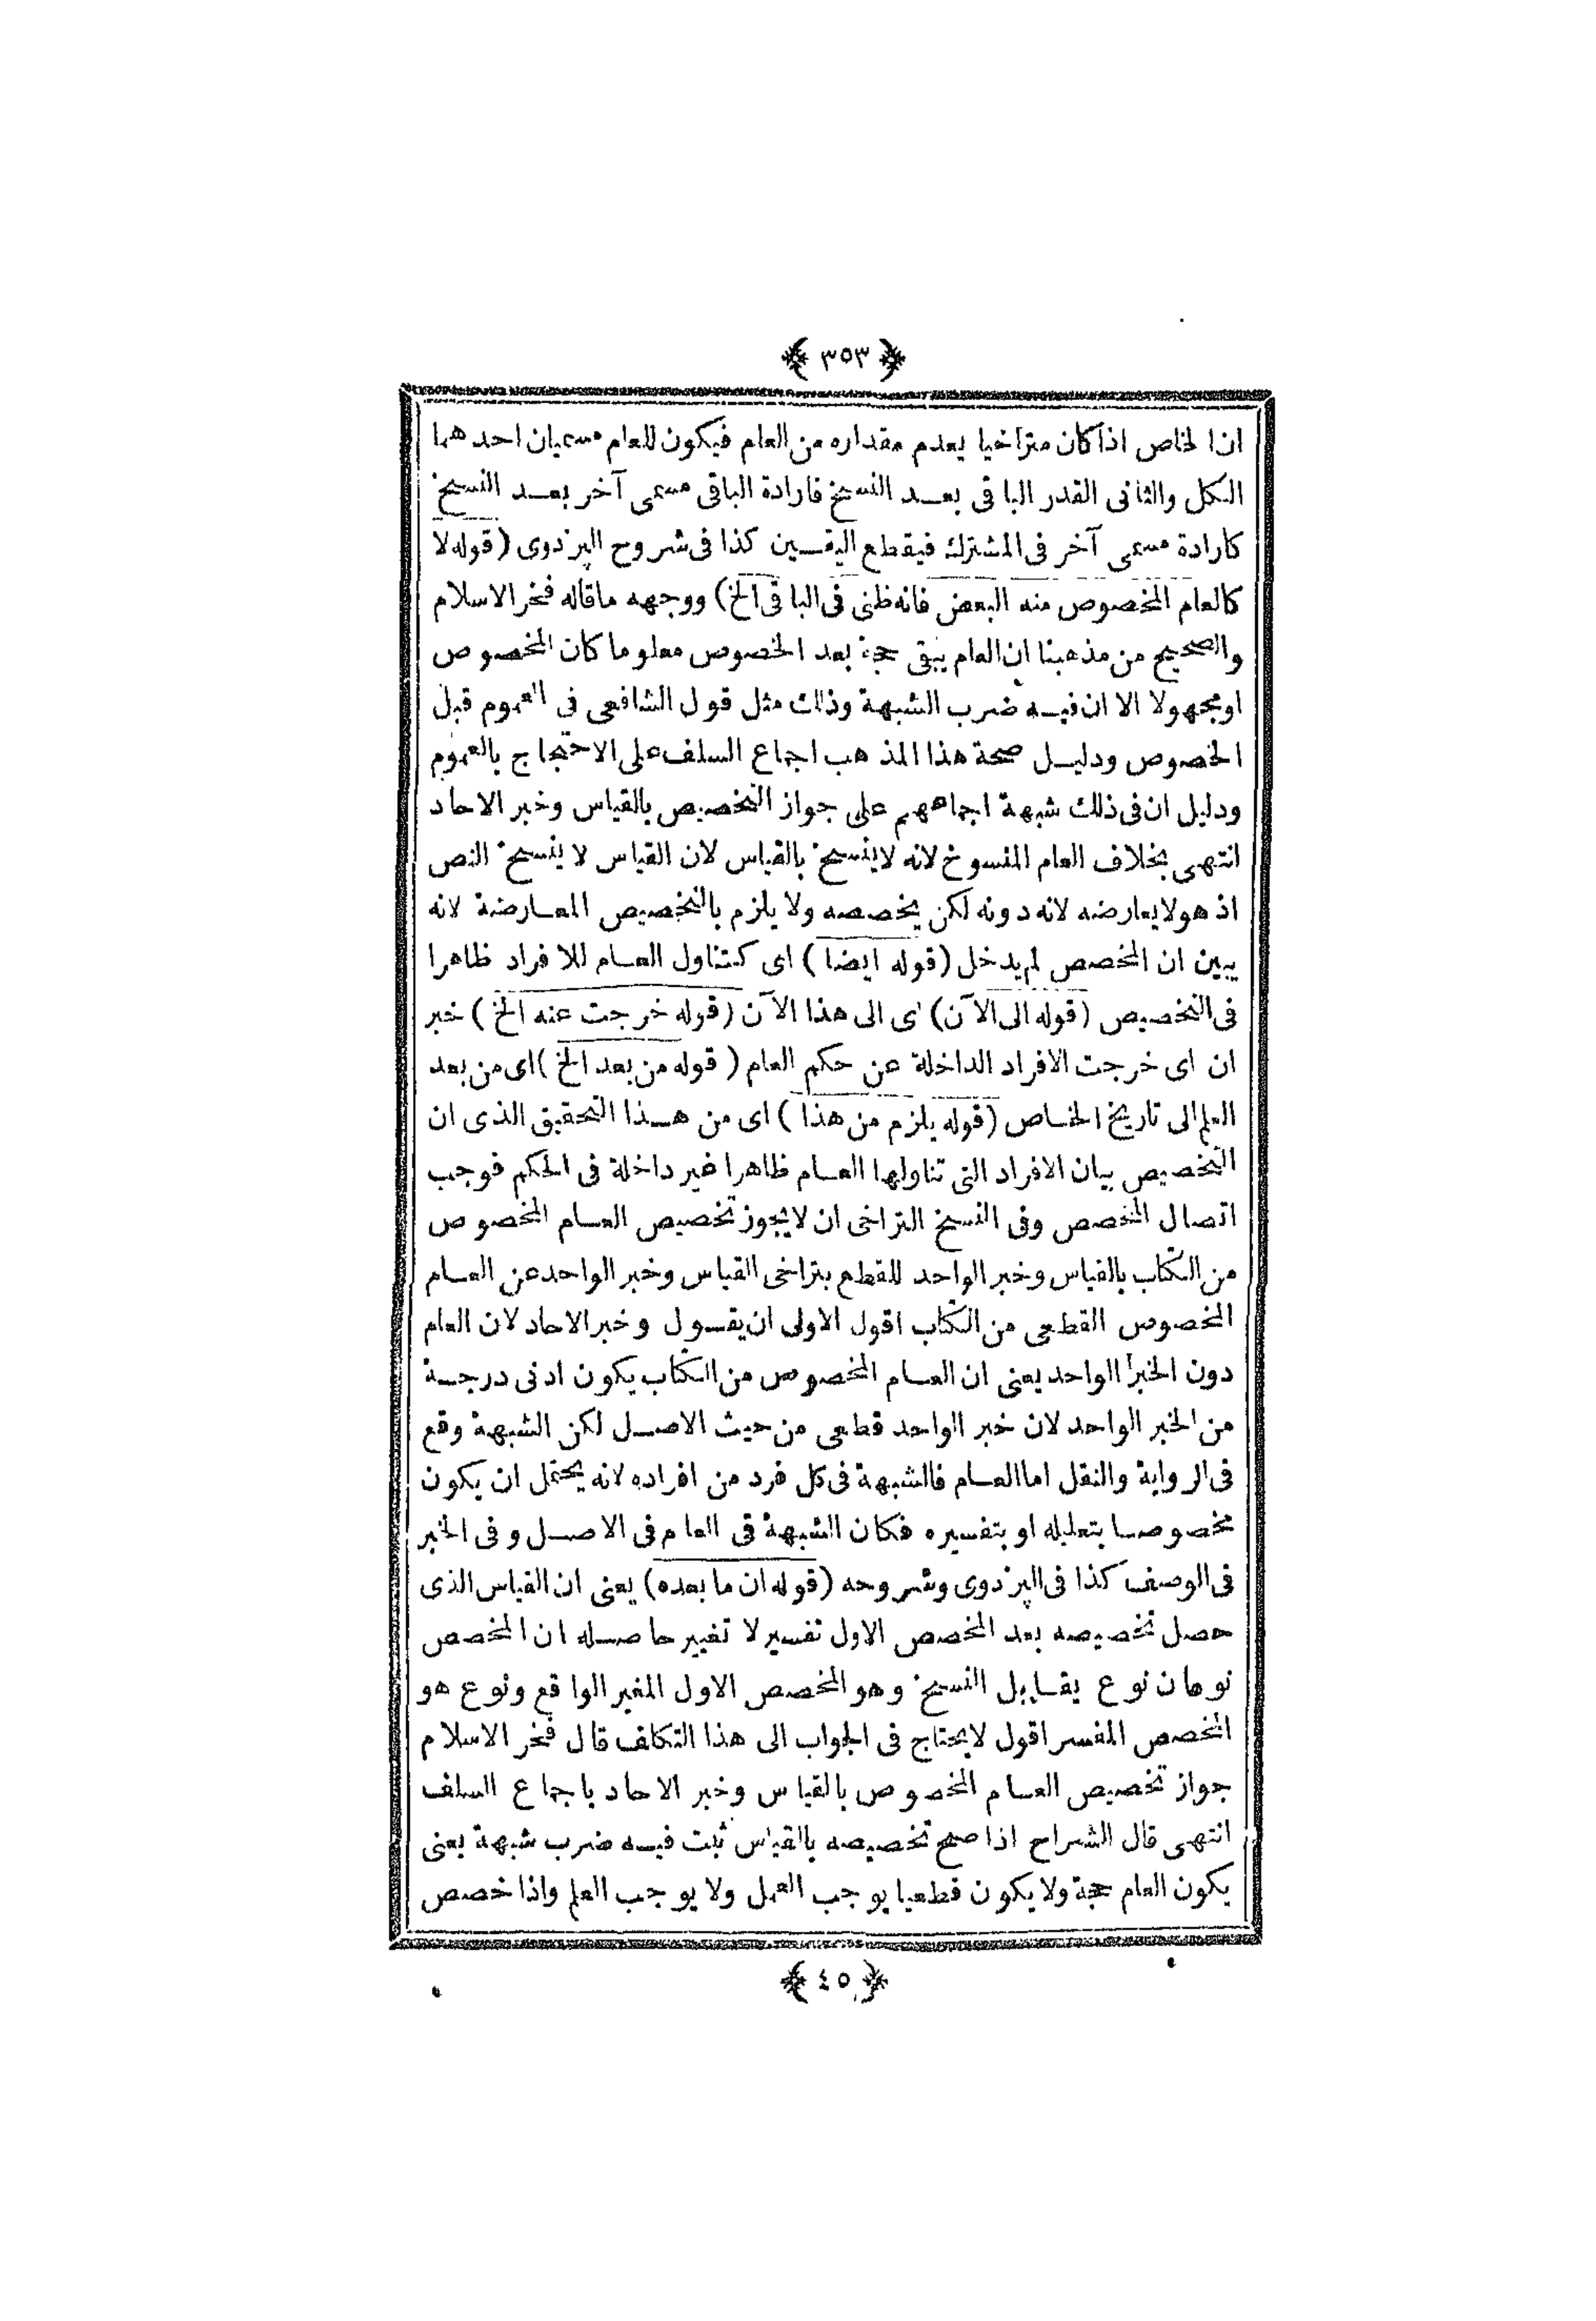 ﴿ ٣٥٣ ﴾
ان الخاص اذا كان متراخيا يعدم مقداره من العام فيكون للعام مسميان احدهما
الكل والثانى القدر الباقى بعد النسخ فارادة الباقى مسمى آخر بعد النسخ
كارادة مسمى آخر فى المشترك فيقطع اليقين كذا فى شروح البزدوى (قوله لا
كالعام المخصوص منه البعض فانه ظنى فى الباقى الخ) ووجهه ماقاله فخر الاسلام
والصحيح من مذهبنا ان العام يبقى حجة بعد الخصوص معلوما كان المخصوص
او مجهولا الا ان فيه ضرب الشبهة وذلك مثل قول الشافعى فى العموم قبل
الخصوص ودليل صحة هذا المذهب اجماع السلف على الاحتجاج بالعموم
ودليل ان فى ذلك شبهة اجماعهم على جواز التخصيص بالقياس وخبر الاحاد
انتهى بخلاف العام المنسوخ لانه لاينسخ بالقياس لان القياس لا ينسخ النص
اذ هو لايعارضه لانه دونه لكن يخصصه ولا يلزم بالتخصيص المعارضة لانه
يبين ان المخصص لم يدخل (قوله ايضا) اى كتناول العام للافراد ظاهرا
فى التخصيص (قوله الى الآن) اى الى هذا الآن (قوله خرجت عنه الخ) خبر
ان اى خرجت الافراد الداخلة عن حكم العام (قوله من بعد الخ) اى من بعد
العلم الى تاريخ الخاص (قوله يلزم من هذا) اى من هذا التحقيق الذى ان
التخصيص بيان الافراد التى تناولها العام ظاهرا غير داخلة فى الحكم فوجب
اتصال المخصص وفى النسخ التراخى ان لايجوز تخصيص العام المخصوص
من الكتاب بالقياس وخبر الواحد للقطع بتراخى القياس وخبر الواحد عن العام
المخصوص القطعى من الكتاب اقول الاولى ان يقول وخبر الاحاد لان العام
دون الخبر الواحد يعنى ان العام المخصوص من الكتاب يكون ادنى درجة
من الخبر الواحد لان خبر الواحد قطعى من حيث الاصل لكن الشبهة وقع
فى الرواية والنقل اما العام فالشبهة فى كل فرد من افراده لانه يحتمل ان يكون
مخصوصا بتعليله او بتفسيره فكان الشبهة فى العام فى الاصل وفى الخبر
فى الوصف كذا فى البزدوى وشروحه (قوله ان ما بعده) يعنى ان القياس الذى
حصل تخصيصه بعد المخصص الاول تفسير لا تغيير حاصله ان المخصص
نوعان نوع يقابل النسخ وهو المخصص الاول المغير الواقع ونوع هو
المخصص المفسر اقول لايحتاج فى الجواب الى هذا التكلف قال فخر الاسلام
جواز تخصيص العام المخصوص بالقياس وخبر الاحاد باجماع السلف
انتهى قال الشراح اذا صح تخصيصه بالقياس ثبت فيه ضرب شبهة يعنى
يكون العام حجة ولا يكون قطعيا يوجب العمل ولا يوجب العلم واذا خصص
﴿ ٤٥ ﴾